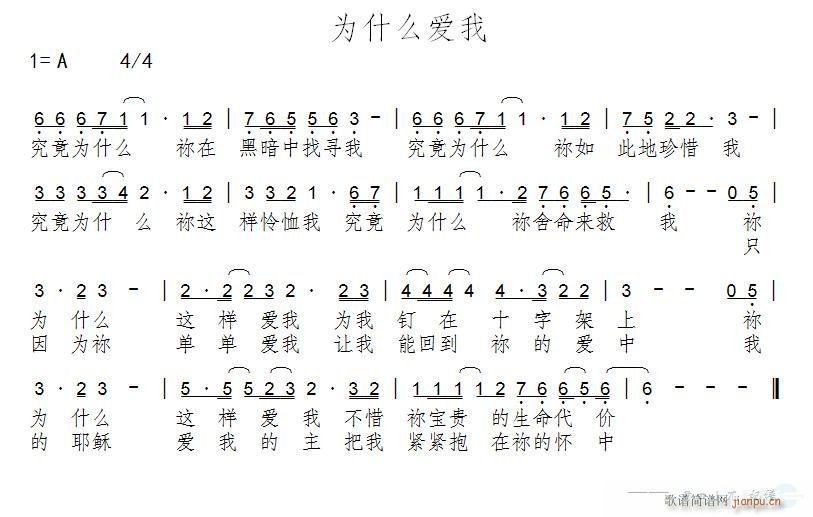 为什么爱我
1= A 4/4
6 6 6 7 1 1 · 1 2 | 7 6 5 5 6 3 - | 6 6 6 7 1 1 · 1 2 | 7 5 2 2 · 3 - |
究竟为什么 祢在 黑暗中找寻我 究竟为什么 祢如 此地珍惜 我
3 3 3 3 4 2 · 1 2 | 3 3 2 1 · 6 7 | 1 1 1 1 · 2 7 6 6 5 · | 6 - - 0 5 |
究竟为什 么 祢这 样怜恤我 究竟 为什么 祢舍命来救 我 祢
只
3 · 2 3 - | 2 · 2 2 3 2 · 2 3 | 4 4 4 4 4 4 · 3 2 2 | 3 - - 0 5 |
为 什么 这 样 爱我 为我 钉 在 十 字 架 上 祢
因 为祢 单 单 爱我 让我 能回到 祢 的 爱 中 我
3 · 2 3 - | 5 · 5 5 2 3 · 3 2 | 1 1 1 1 2 7 6 6 5 6 | 6 - - - ‖
为 什么 这 样 爱 我 不惜 祢宝贵 的生命代 价
的 耶稣 爱 我 的 主 把我 紧紧抱 在祢的怀 中
歌谱简谱网
jianpu.cn